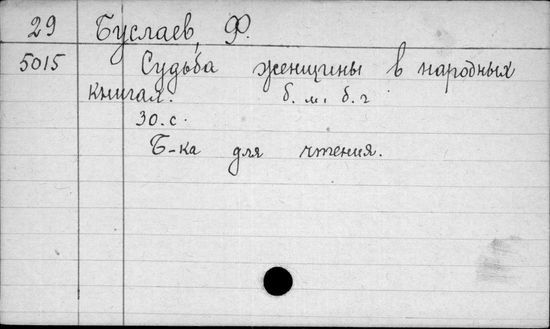 29 Буслаев, Ф.
5015 Судьба женщины в народных
книгах. б. м. б. г
30. с.
Б-ка для чтения.